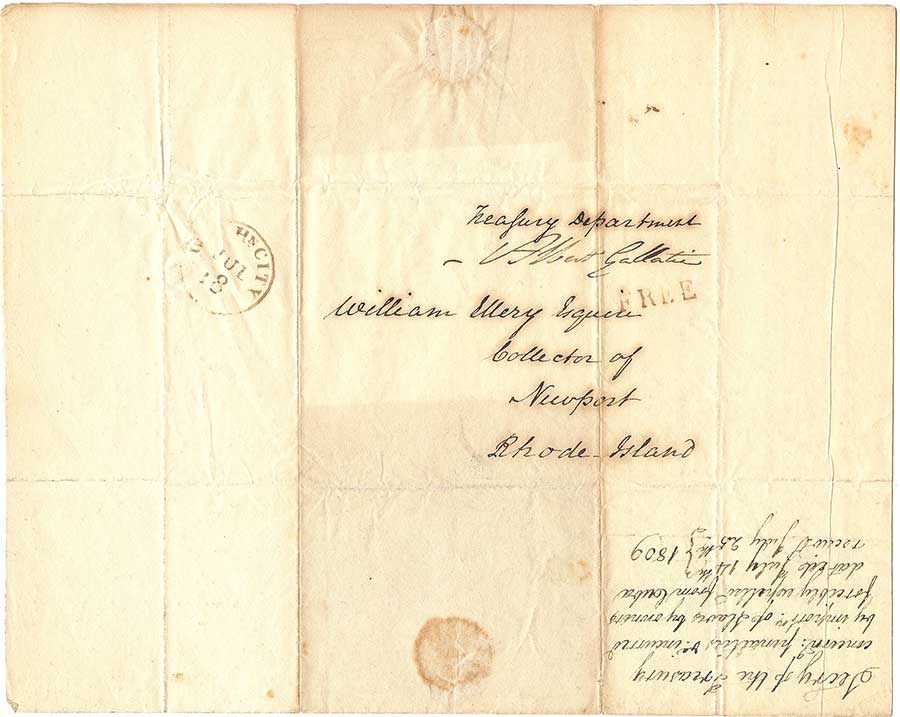 Treasury Department
Albert Gallatin
FREE
William Ellery Esquire
Collector of
Newport
Rhode-Island
Nn CITY
JUL
18
Secry of the Treasury
concern: penalties &c incurred
by import.n of slaves by owners
forcibly expelled from Cuba
dated July 14th
receivd July 25th } 1809